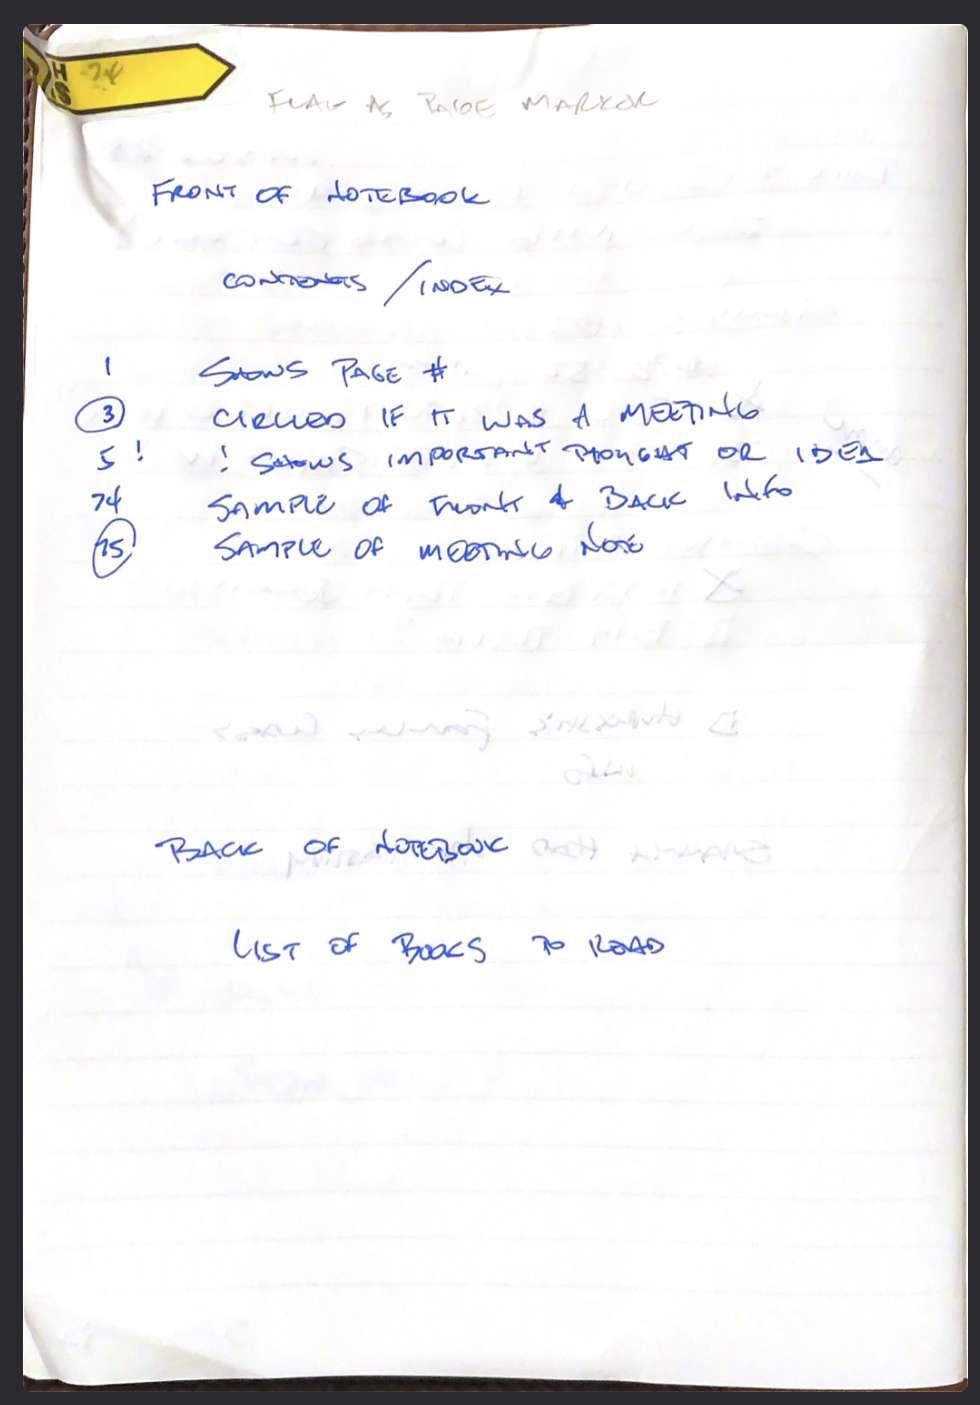 74
FLAG AS PAGE MARKER
FRONT OF NOTEBOOK
CONTENTS / INDEX
1 SHOWS PAGE #
3 CIRCLED IF IT WAS A MEETING
5 ! ! SHOWS IMPORTANT THOUGHT OR IDEA
74 SAMPLE OF FRONT & BACK INFO
75 SAMPLE OF MEETING NOTE
BACK OF NOTEBOOK
LIST OF BOOKS TO READ